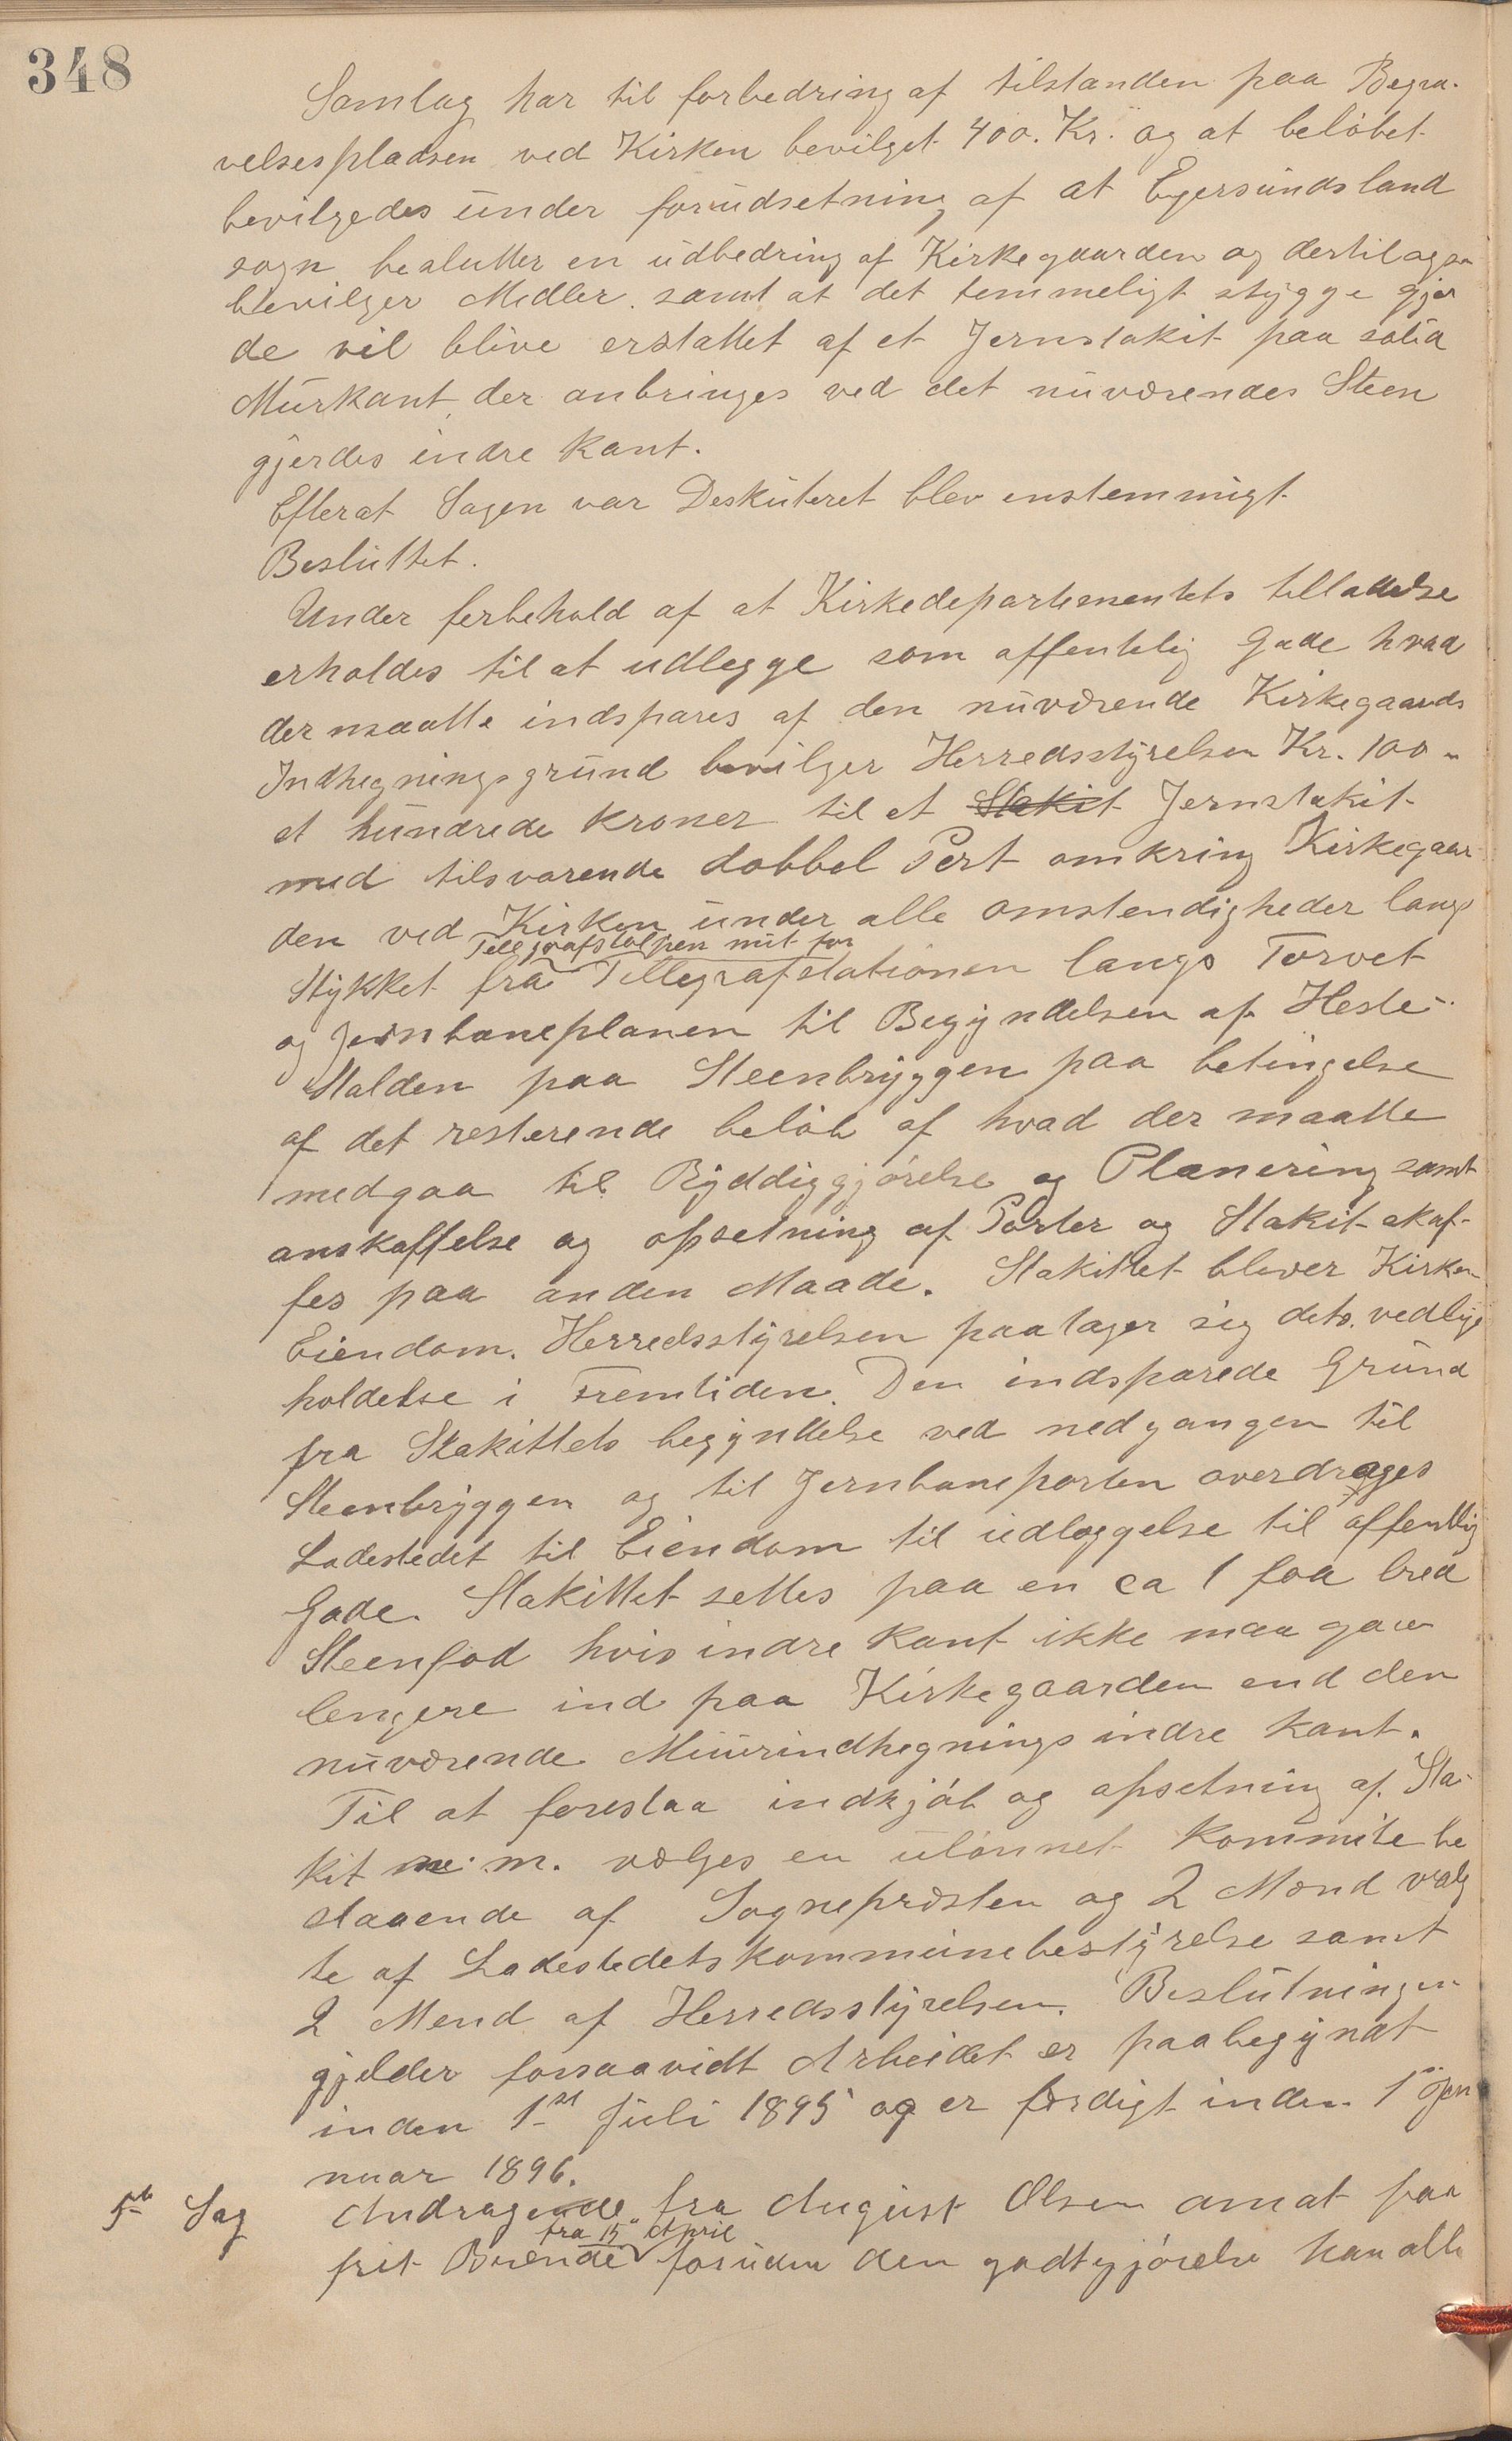 348
Samlag har til forbedring af tilstanden paa Begra-
velsespladsen ved Kirken bevilget 400. Kr. og at beløbet
bevilgedes under forudsetning af at Egersundsland
sogn beslutter en udbedring af Kirkegaarden og dertil ogsaa
bevilger Midler. samt at det temmeligt stygge gjer
de vil blive erstattet af et Jernstakit paa solid
Murkant, der anbringes ved det nuværendes Steen
gjerdes indre Kant.
Efterat Sagen var Deskuteret blev enstemmigt
Besluttet.
Under forbehold af at Kirkedepartementets tilladelse
erholdes til at udlegge som offentlig Gade hvad
der maatte indspares af den nuværende Kirkegaards
Indhegningsgrund bevilger Herredsstyrelsen Kr. 100 -
et hundrede kroner til et Stakit Jernstakit
med tilsvarende dobbel Port omkring Kirkegaar-
den ved Kirken under alle omstendigheder langs
Tellgrafstolpen mit for
Stykket fra Tellegrafstationen langs Torvet
og Jernbaneplanen til Begyndelsen af Heste-
Stalden paa Steenbryggen paa betingelse
af det resterende beløb af hvad der maatte
medgaa til Ryddiggjørelse og Planering samt
anskaffelse og opsetning af Porter og Stakit skaf-
fes paa anden Maade. Stakittet blever Kirkens
Eiendom. Herredsstyrelsen paatager sig dets vedlige
holdelse i Fremtiden. Den indsparede Grund
fra Stakittets begyndelse ved nedgangen til
Steenbryggen og til Jernbaneporten overdrages
Ladestedet til Eiendom til udleggelse til offentlig
Gade. Stakittet settes paa en ca 1 fod bred
Steenfod hvis indre Kant ikke maa gaa
lengere ind paa Kirkegaarden end den
nuværende Muurindhegnings indre Kant.
Til at foreslaa indkjøb og opsetning af Sta-
kit m. m. vælges en ulønnet Kommite be
staaende af Sognepræsten og 2 Mænd valg
te af Ladestedets kommunebestyrelse samt
2 Mend af Herredsstyrelsen. Beslutningen
gjelder forsaavidt Arbeidet er paabegyndt
inden 1ste Juli 1895 og er ferdigt inden 1ste Jan
nuar 1896.
5te Sag Andragende fra August Olsen amat paa
fra 15de April
frit Brænde foruden den godtgjørelse han alle